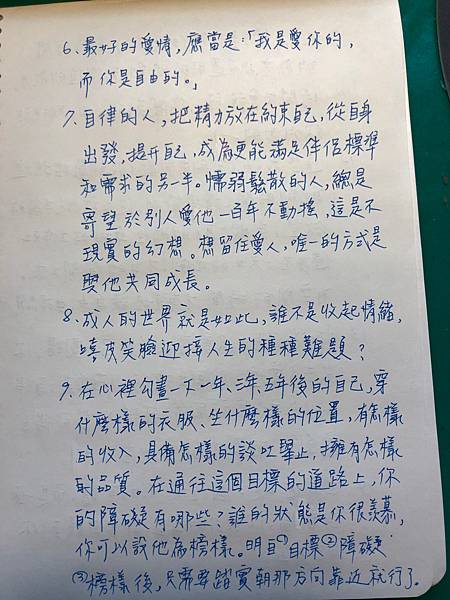 6、最好的愛情，應當是：「我是愛你的，
而你是自由的。」
7、自律的人，把精力放在約束自己，從自身
出發，提升自己，成為更能滿足伴侶標準
和需求的另一半。懦弱鬆散的人，總是
寄望於別人愛他一百年不動搖，這是不
現實的幻想。想留住愛人，唯一的方式是
與他共同成長。
8、成人的世界就是如此，誰不是收起情緒，
嘻皮笑臉迎接人生的種種難題？
9、在心裡勾畫一下一年、三年、五年後的自己，穿
什麼樣的衣服、坐什麼樣的位置，有怎樣
的收入，具備怎樣的談吐舉止，擁有怎樣
的品質。在通往這個目標的道路上，你
的障礙有哪些？誰的狀態是你很羨慕，
你可以設他為榜樣。明白①目標②障礙
③榜樣後，只需要踏實朝那方向靠近就行了。